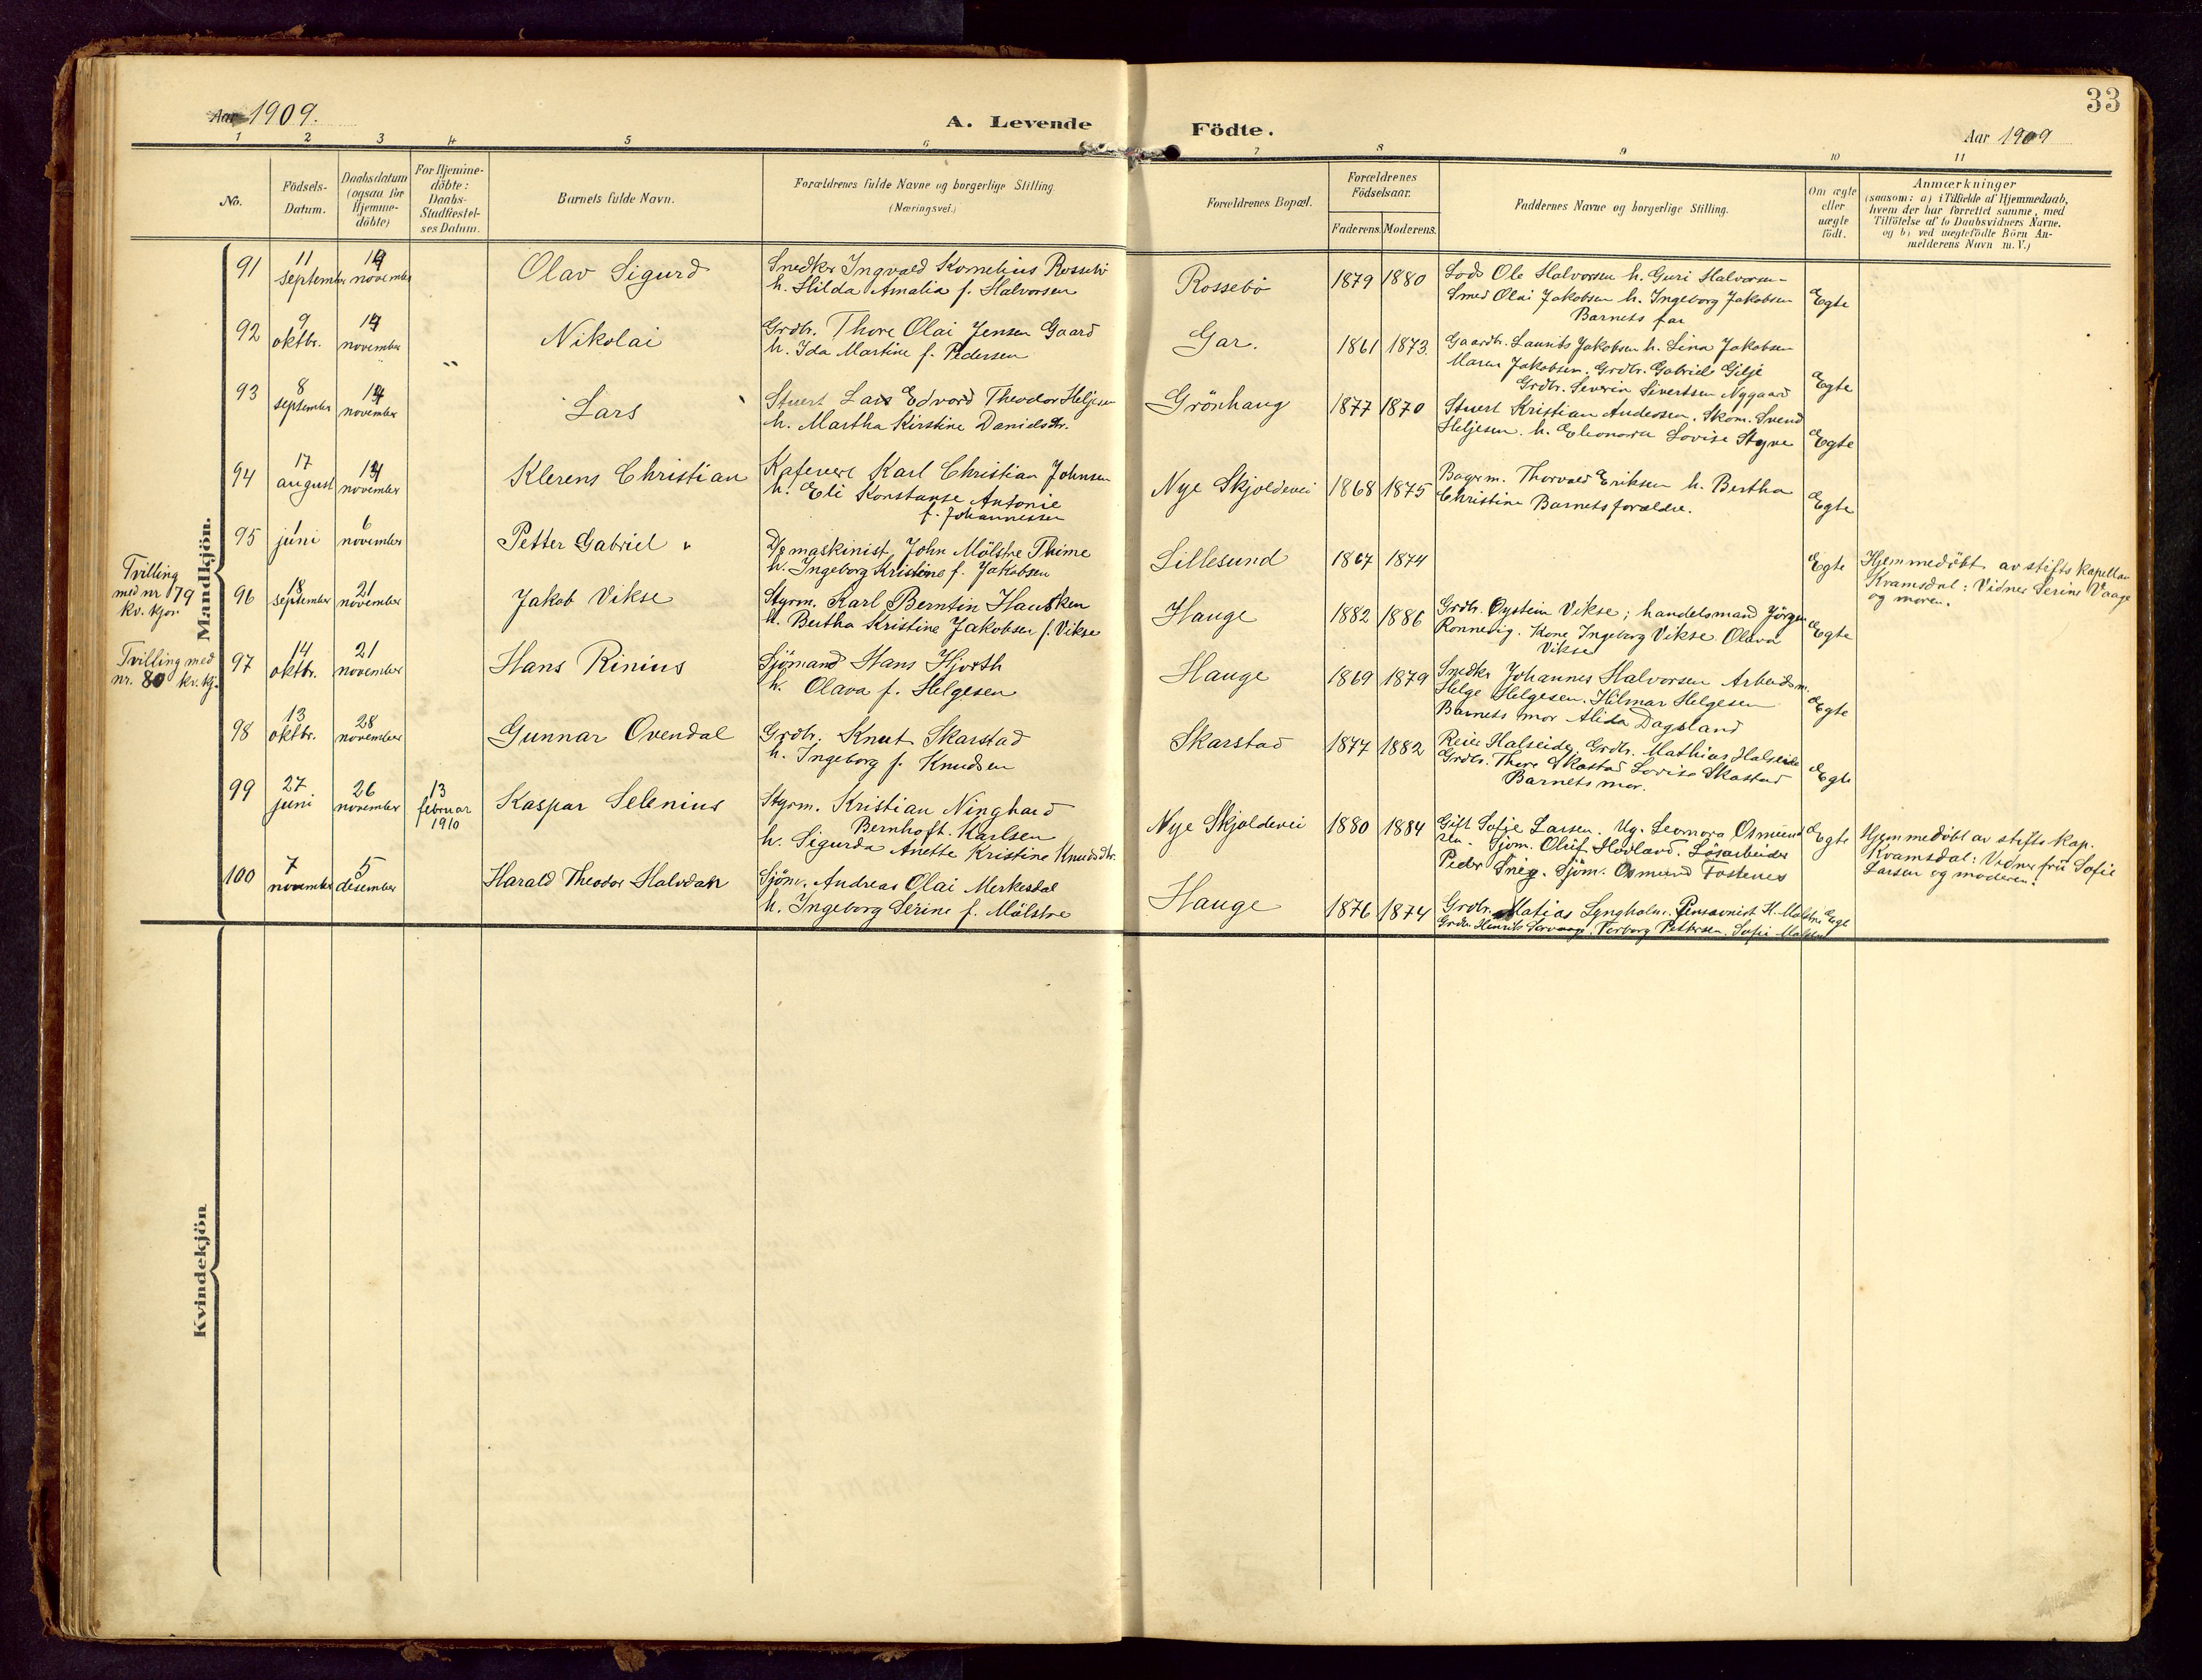 33
Aar 1909.
A. Levende Födte.
Aar 1909
1 2 3 4 5 6 7 8 9 10 11
No.
Födsels-
Datum.
Daabsdatum
(ogsaa for
Hjemme-
döbte)
For Hjemme-
döbte:
Daabs-
Stadfæstel-
ses Datum.
Barnets fulde Navn.
Forældrenes fulde Navne og borgerlige Stilling.
(Næringsvei.)
Forældrenes Bopæl.
Forældrenes
Födselsaar.
Faderens. Moderens.
Faddernes Navne og borgerlige Stilling.
Om ægte
eller
uægte
födt.
Anmærkninger
(saasom: a) i Tilfælde af Hjemmedaab,
hvem der har forrettet samme, med
Tilföielse af to Daabsvidners Navne.
og b) ved uægtefödte Börn An-
melderens Navn m. V.)
Mandkjön.
91
11
september
november
Olav Sigurd
Snedker Ingvald Kornelius Rossebö
h. Hilda Amalia f. Halvorsen
Rossebö
1879 1880
Lods Ole Halvorsen h. Guri Halvorsen
Smed Olai Jakobsen h. Ingeborg Jakobsen
Barnets far
Egte
92
9
oktbr.
14
november
Nikolai
Grdbr. Thore Olai Jensen Gaard
h. Ida Martine f. Pedersen
Gar.
1861 1873
Gaardb. Laurits Jakobsen h. Lina Jakobsen
Maren Jakobsen. Grdbr. Gabriel Gilje
Grdbr. Severin Sivertsen Nygaard
Egte
93
8
september
14
november
Lars
Stuert Lars Edvard Theodor Heljesen
h. Martha Kirstine Danielsdtr.
Grönhaug
1877 1870
Stuert Kristian Andersen. Skom. Svend
Heljesen. h. Eleonora Lovise Styve
Egte
94
17
august
14
november
Klerens Christian
Kafevert Karl Christian Johnsen
h. Eli Konstanse Antonie
f. Johannessen
Nye Skjoldevei
1868 1875
Bagerm. Thorvald Eriksen h. Bertha
Christine Barnets forældre.
Egte
95
1
juni
6
november
Petter Gabriel
D/s maskinist John Mölstre Thime
h. Ingeborg Kristine f. Jakobsen
Lillesund
1867 1874
Egte
Hjemmedöbt av stiftskapellan
Kvamsdal: Vidner Serine Vaage
og moren.
Tvilling
med nr 79
kv. kjön
96
18
september
21
november
Jakob Vikse
Styrm. Karl Berntin Hausken
h. Bertha Kristine Jakobsen f. Vikse
Hauge
1882 1886
Grdbr. Oystein Vikse; handelsmand Jörgen
Ronnevig. Kone Ingeborg Vikse Olava
Vikse
Egte
Tvilling med
nr. 80 kv. kj.
97
14
oktbr.
21
november
Hans Rinius
Sjömand Hans Hjorth
h. Olava f. Helgesen
Hauge
1869 1879
Snedkr Johannes Halvorsen Arbeidsm.
Helge Helgesen. Hilmar Helgesen
Barnets mor Alida Dagsland
Egte
98
13
oktbr.
28
november
Gunnar Ovendal
Grdbr. Knut Skarstad
h. Ingeborg f. Knudsen
Skarstad
1877 1882
Reier Halseide, Grdbr. Mathias Halseide
Grdbr. Thore Skastad Lovise Skastad
Barnets mor.
Egte
99
27
juni
26
november
13
februar
1910
Kaspar Selenius
Styrm. Kristian Ninghard
Bernhoft Karlsen
h. Sigurda Anette Kristine Knudsdtr.
Nye Skjoldevei
1880 1884
Gift Sofie Larsen. Ug. Leonora Osmund
Sjöm. Oluf Hovland. Lösarbeider
Peder Sneg. Sjöm. Osmund Fosenes
Egte
Hjemmedöbt av stifts kap.
Kvamsdal: Vidner frü Sofie
Larsen og moderen.
100
7
november
5
desember
Harald Theodor Halvdan
Sjöm. Andreas Olai Merkesdal
h. Ingeborg Serine f. Mölstre
Hauge
1876 1874
Grdbr. Matias Lyngholm. Pensionist H. Mölstre
Grdbr. Henrik Pettersen. Sofie
Egte
Kvindekjön